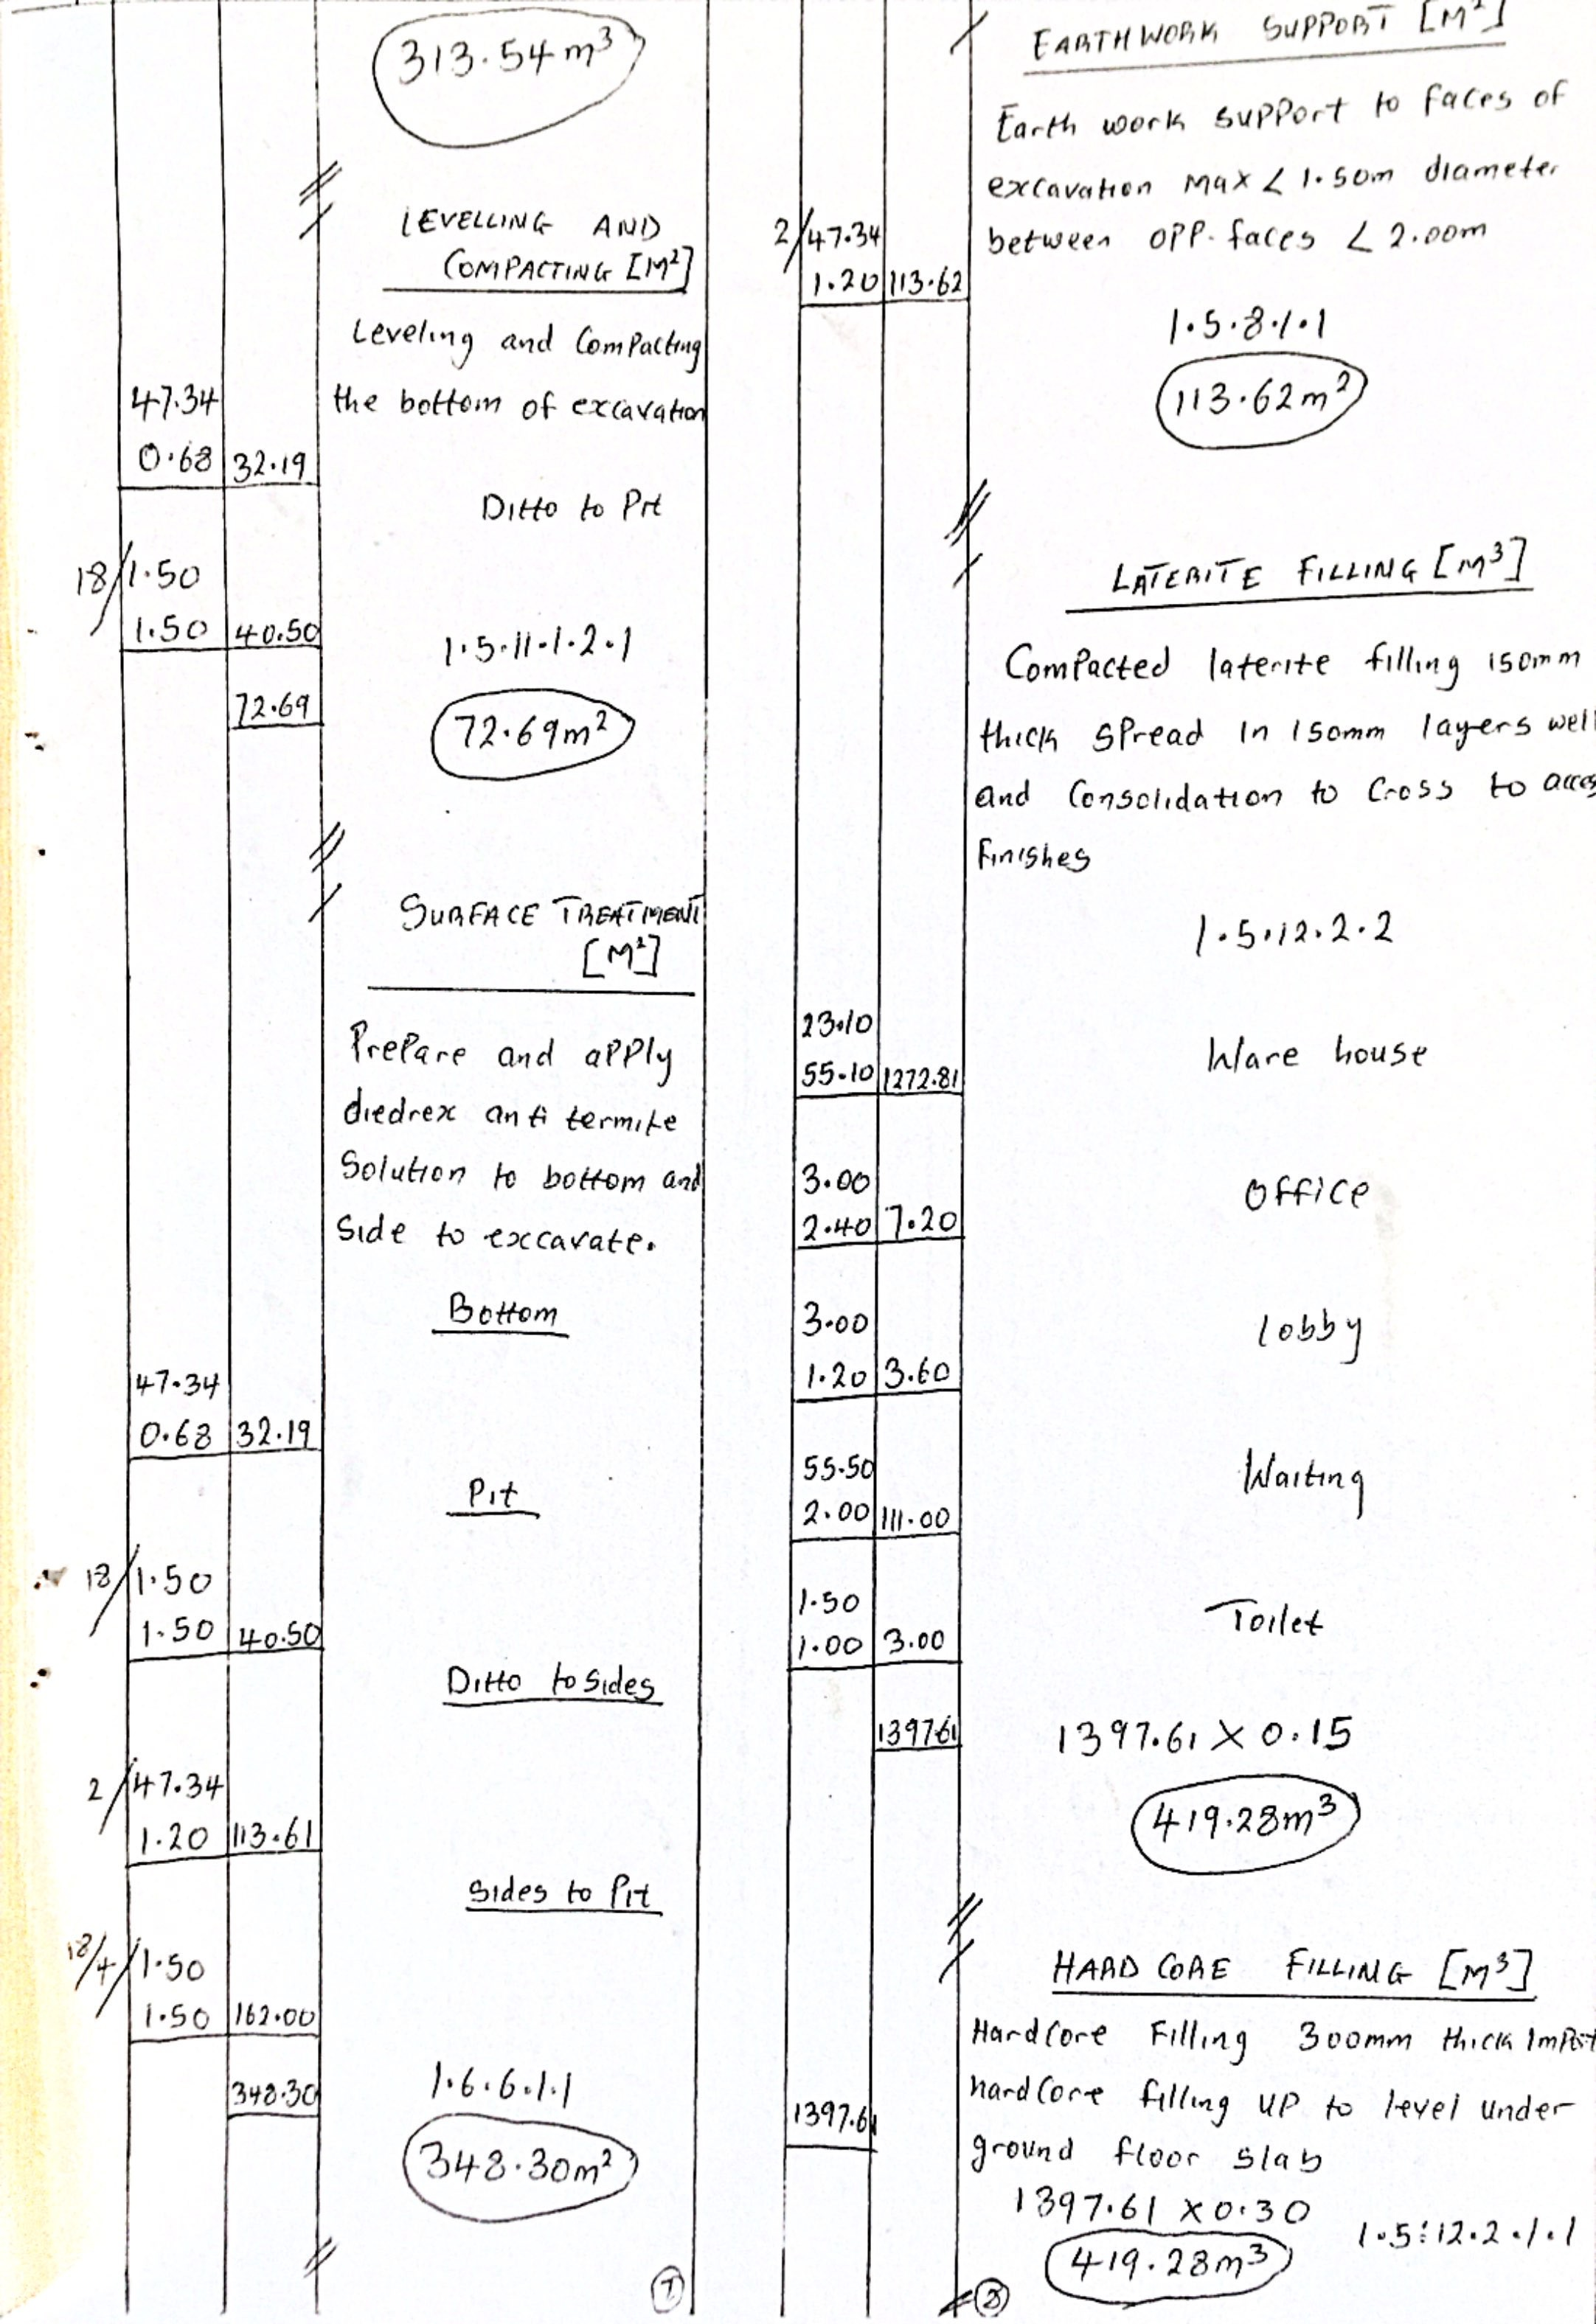 313.54m³
LEVELLING AND
COMPACTING [M²]
Leveling and Compacting
47.34
the bottom of excavation
0.68 32.19
Ditto to Pit
18/1.50
1.50 40.50
1.5.11.1.2.1
72.69
72.69m²
SURFACE TREATMENT
[M²]
Prepare and apply
diedrex anti termite
Solution to bottom and
Side to excavate.
Bottom
47.34
0.68 32.19
Pit
18/1.50
1.50 40.50
Ditto to Sides
2/47.34
1.20 113.61
Sides to Pit
18/4/1.50
1.50 162.00
348.30
1.6.6.1.1
348.30m²
7
EARTHWORK SUPPORT [M²]
Earth work support to faces of
excavation Max < 1.50m diameter
2/47.34
between opp. faces < 2.00m
1.20 113.62
1.5.8.1.1
113.62m²
LATERITE FILLING [M³]
Compacted laterite filling 150mm
thick spread in 150mm layers well
and Consolidation to Cross to
finishes
1.5.12.2.2
23.10
55.10 1272.81
Ware house
3.00
2.40 7.20
Office
3.00
1.20 3.60
lobby
55.50
2.00 111.00
Waiting
1.50
1.00 3.00
Toilet
1397.61
1397.61 X 0.15
419.28m³
HARD CORE FILLING [M³]
Hardcore Filling 300mm thick
hardcore filling up to level under
1397.61
ground floor slab
1397.61 X0.30
1.5:12.2.1.1
419.28m³
8